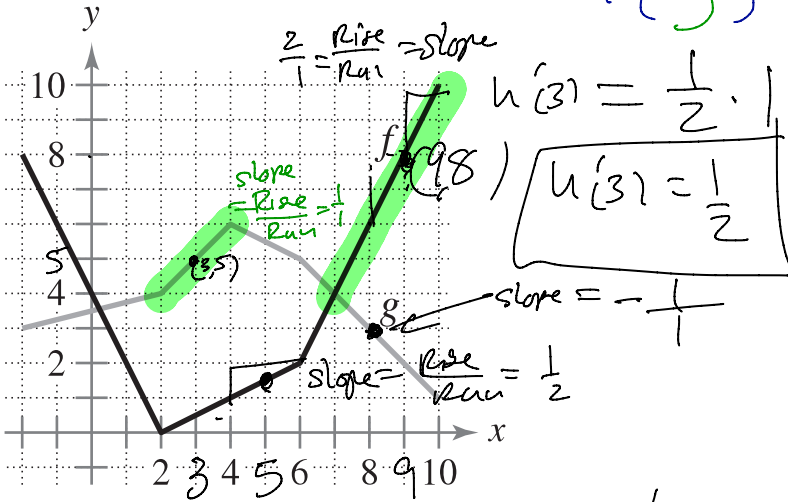 y
2/1 = Rise/Run = slope
10
u'(3) = 1/2 · 1
8
f
(9,8)
slope
= Rise/Run = 1/1
u'(3) = 1/2
5
(3,5)
4
g
slope = - 1/1
2
slope = Rise/Run = 1/2
x
2 3 4 5 6 8 9 10